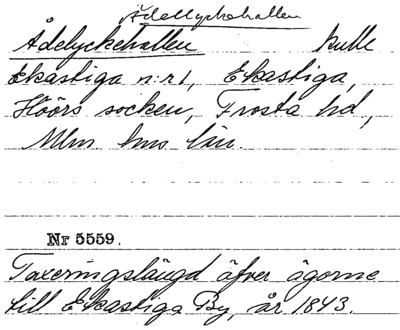 Ådellyckehallen
Ådelyckehallen kulle
Ekastiga n:r 1, Ekastiga,
Höörs socken, Frosta hd,
Mlm hus län.
Nr 5559.
Taxeringslängd öfver ägorne
till Ekastiga By, år 1843.